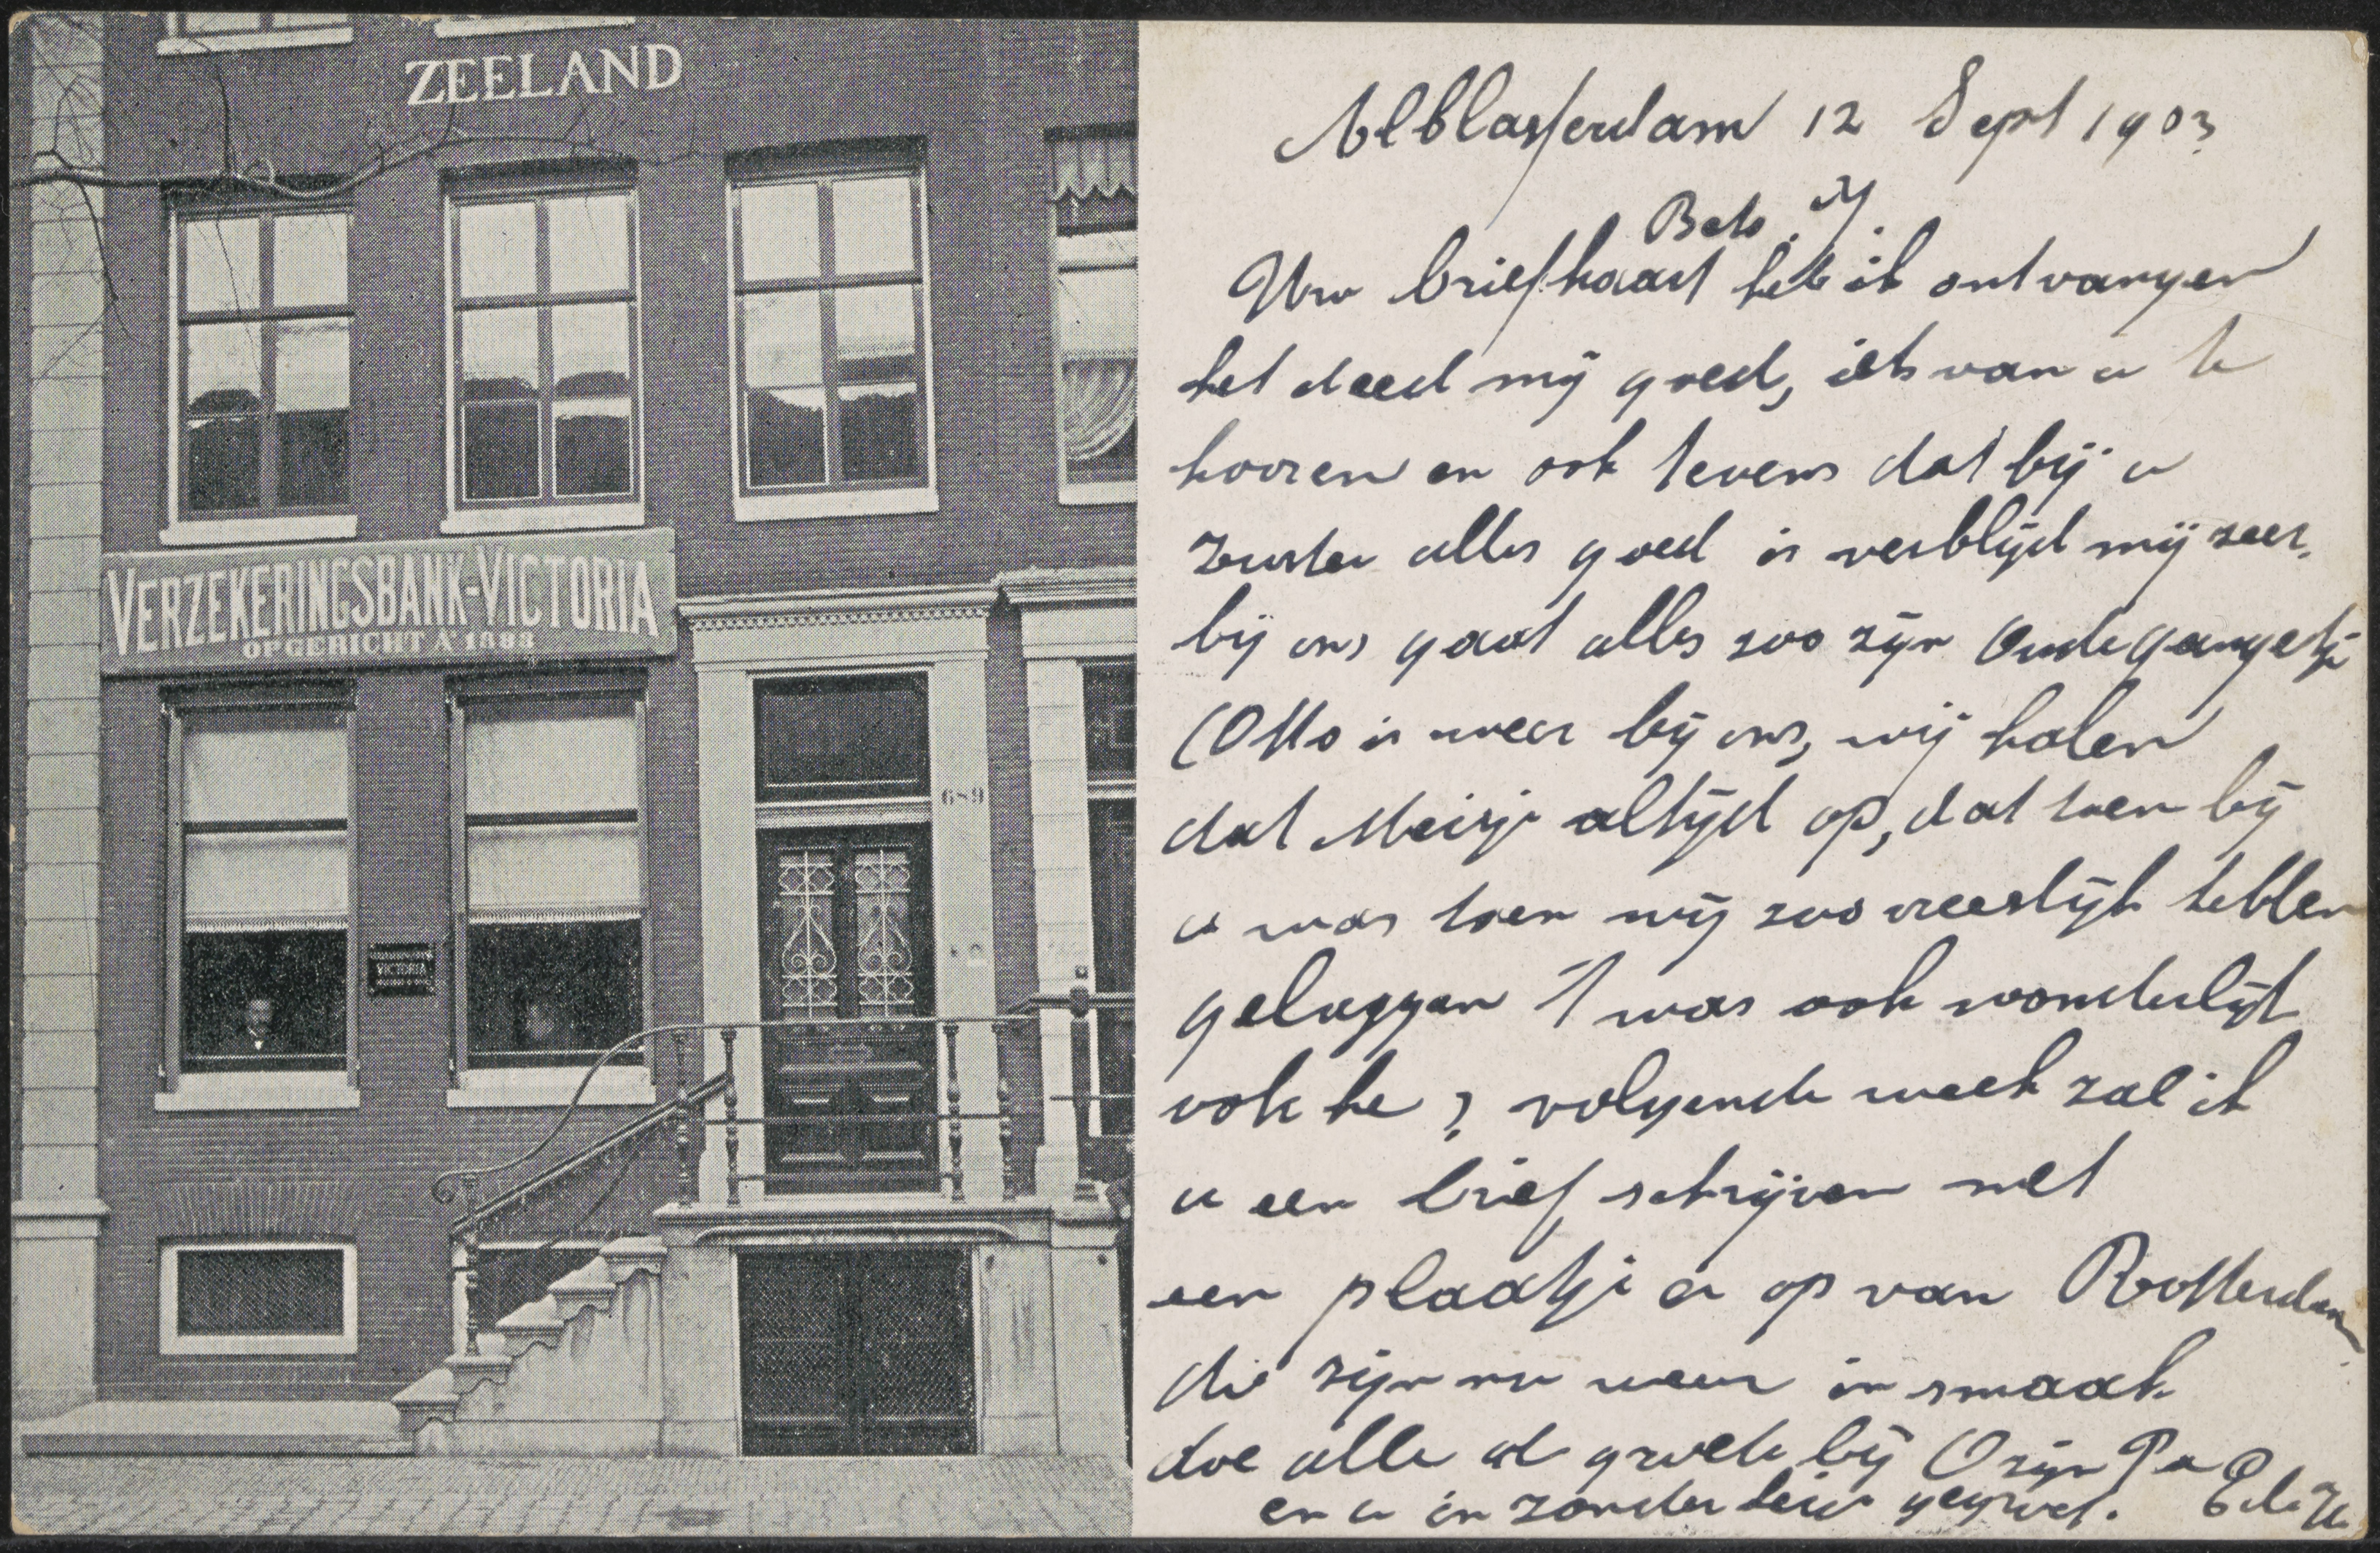 ZEELAND
VERZEKERINGSBANK-VICTORIA
OPGERICHT Aº 1883
689
VICTORIA
Alblasserdam 12 Sept 1903
Bets
Uw briefkaart heb ik ontvangen
het deed mij goed, iets van u te
hooren en ook tevens dat bij u
zuster alles goed is verblijd mij zeer,
bij ons gaat alles zoo zijn Oude gangetje
(Otto is weer bij ons, wij halen
dat Meisje altijd op, dat toen bij
u was toen wij zoo vreeslijk hebben
gelaggen 't was ook wonderlijk
ook he ? volgende week zal ik
u een brief schrijven met
een plaatje er op van Rotterdam
die zijn nu weer in smaak
doe alle de groete bij Ozijn Pa
en u in zonder heid gegroet.